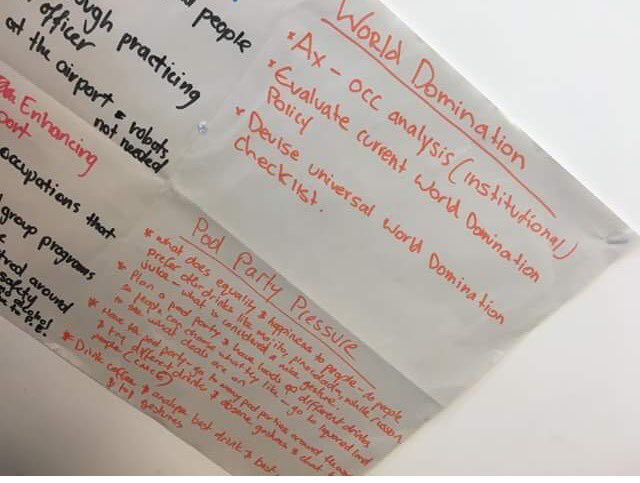 people
ough practicing
officer
at the airport = robots,
not needed
Enhancing
port
occupations that
group programs
around
safety
World Domination
* Ax - occ analysis (institutional)
* Evaluate current World Domination
Policy
* Devise universal World Domination
checklist.
Pool Party Pressure
* What does equality & happiness to people - do people
prefer other drinks like mojito, pinacolada, passion
juice - what is considered a nice gesture.
* Plan a pool party & have loads of different drinks
so people can choose what they like - go to liquorland
to see what deals are on
* Have the pool party - go to pool parties around the
& try different drinks & observe gesture & chat to
people (CMCE)
* Drink coffee & analyse best drink & best
gestures